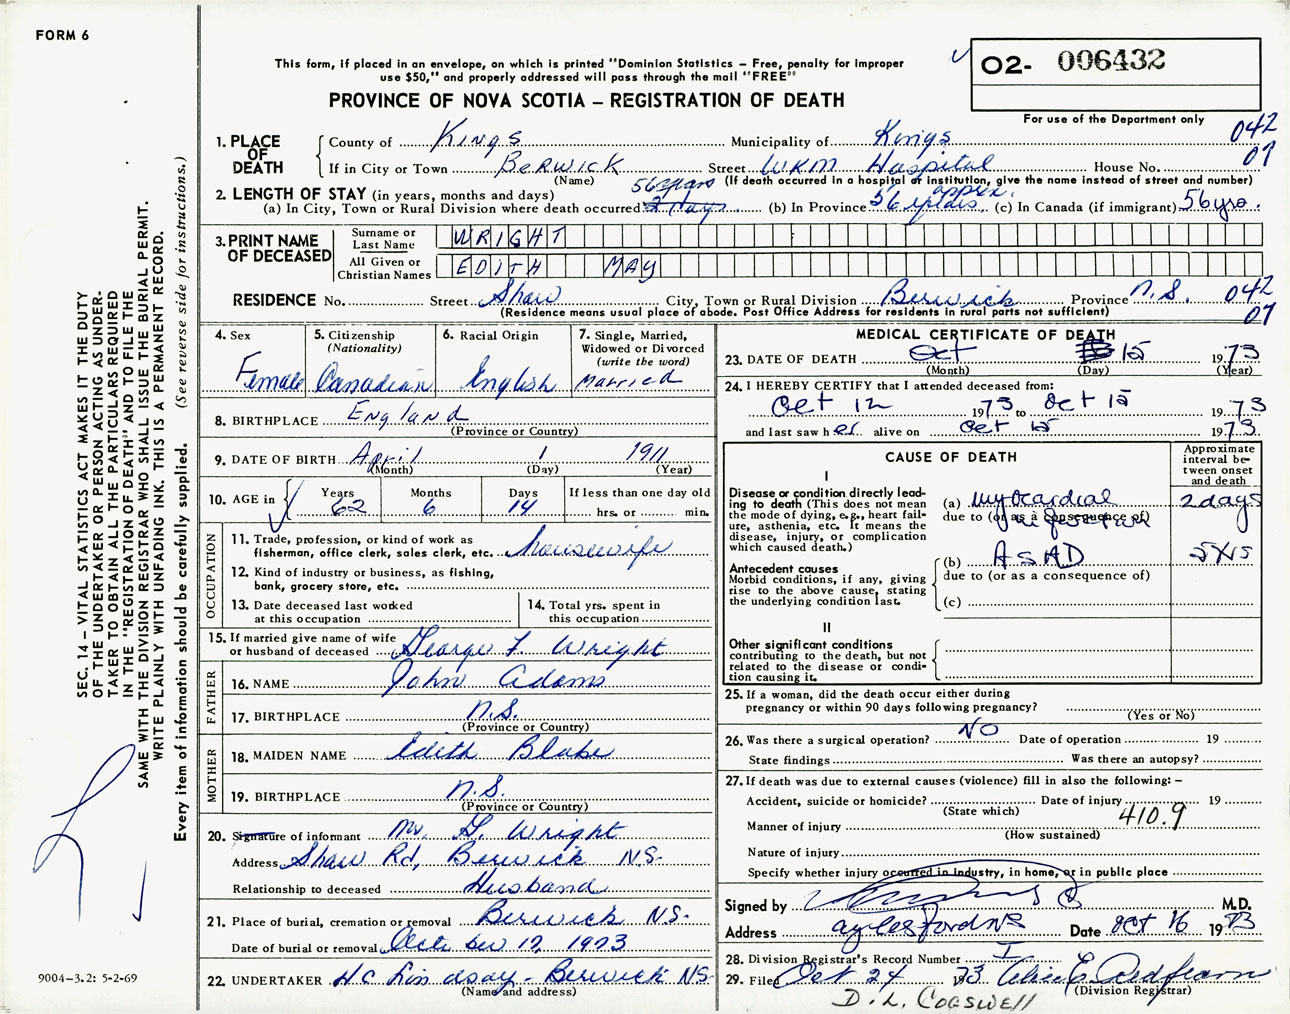 FORM 6
This form, if placed in an envelope, on which is printed "Dominion Statistics – Free, penalty for improper
use $50," and properly addressed will pass through the mail "FREE"
PROVINCE OF NOVA SCOTIA – REGISTRATION OF DEATH
O2- 006432
For use of the Department only
1. PLACE OF DEATH
County of Kings Municipality of Kings 042
If in City or Town Berwick Street WKM Hospital House No. 07
(Name) (If death occurred in a hospital or institution, give the name instead of street and number)
2. LENGTH OF STAY (in years, months and days) 56 years approx.
(a) In City, Town or Rural Division where death occurred 2 days (b) In Province 56 (c) In Canada (if immigrant) 56 yrs.
3. PRINT NAME OF DECEASED
Surname or Last Name WRIGHT
All Given or Christian Names EDITH MAY
RESIDENCE No. Street Shaw City, Town or Rural Division Berwick Province N.S. 042
(Residence means usual place of abode. Post Office Address for residents in rural parts not sufficient) 07
4. Sex Female
5. Citizenship (Nationality) Canadian
6. Racial Origin English
7. Single, Married, Widowed or Divorced (write the word) Married
8. BIRTHPLACE England
(Province or Country)
9. DATE OF BIRTH April 1 1911
(Month) (Day) (Year)
10. AGE in Years 62 Months 6 Days 14 If less than one day old hrs. or min.
OCCUPATION
11. Trade, profession, or kind of work as
fisherman, office clerk, sales clerk, etc. housewife
12. Kind of industry or business, as fishing,
bank, grocery store, etc.
13. Date deceased last worked
at this occupation
14. Total yrs. spent in
this occupation
15. If married give name of wife
or husband of deceased George F. Wright
FATHER
16. NAME John Adams
17. BIRTHPLACE N.S.
(Province or Country)
MOTHER
18. MAIDEN NAME Edith Blake
19. BIRTHPLACE N.S.
(Province or Country)
20. Signature of informant Mr. G. Wright
Address Shaw Rd, Berwick N.S.
Relationship to deceased Husband
21. Place of burial, cremation or removal Berwick N.S.
Date of burial or removal October 17, 1973
22. UNDERTAKER H.C. Lindsay - Berwick N.S.
(Name and address)
MEDICAL CERTIFICATE OF DEATH
23. DATE OF DEATH Oct 15 1973
(Month) (Day) (Year)
24. I HEREBY CERTIFY that I attended deceased from:
Oct 12 1973 to Oct 15 1973
and last saw her alive on Oct 15 1973.
CAUSE OF DEATH
Approximate interval between onset and death
I
Disease or condition directly lead-
ing to death (This does not mean
the mode of dying, e.g., heart fail-
ure, asthenia, etc. It means the
disease, injury, or complication
which caused death.)
(a) myocardial 2 days
due to (or as a consequence of) infarction
(b) ASAD
due to (or as a consequence of)
(c)
Antecedent causes
Morbid conditions, if any, giving
rise to the above cause, stating
the underlying condition last.
II
Other significant conditions
contributing to the death, but not
related to the disease or condi-
tion causing it.
25. If a woman, did the death occur either during
pregnancy or within 90 days following pregnancy?
(Yes or No)
26. Was there a surgical operation? NO Date of operation 19
State findings Was there an autopsy?
27. If death was due to external causes (violence) fill in also the following: –
Accident, suicide or homicide? Date of injury 19
(State which) 410.9
Manner of injury
(How sustained)
Nature of injury
Specify whether injury occurred in industry, in home, or in public place
Signed by M.D.
Address Aylesford NS Date Oct 16 1973
28. Division Registrar's Record Number
29. Filed Oct 24 1973
(Division Registrar)
D. L. COGSWELL
SEC. 14 – VITAL STATISTICS ACT MAKES IT THE DUTY
OF THE UNDERTAKER OR PERSON ACTING AS UNDER-
TAKER TO OBTAIN ALL THE PARTICULARS REQUIRED
IN THE "REGISTRATION OF DEATH" AND TO FILE THE
SAME WITH THE DIVISION REGISTRAR WHO SHALL ISSUE THE BURIAL PERMIT.
WRITE PLAINLY WITH UNFADING INK. THIS IS A PERMANENT RECORD.
Every item of information should be carefully supplied. (See reverse side for instructions.)
9004-3.2: 5-2-69